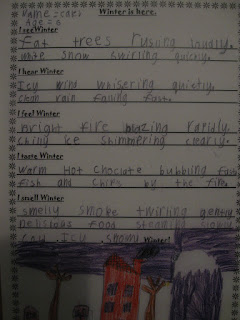 Winter is here.
Name
Age
I see Winter
Fat trees rusling loudly.
White snow twirling quickly.
I hear Winter
Icy wind whisering quietly.
clean rain falling fast.
I feel Winter
Bright fire blazing rapidly.
ice shimmering
I taste Winter
Warm Hot Choclate bubbling fast
fish and chips by the fire.
I smell Winter
smelly smoke twirling gently.
Delicious food steaming
Icy snowy Winter!